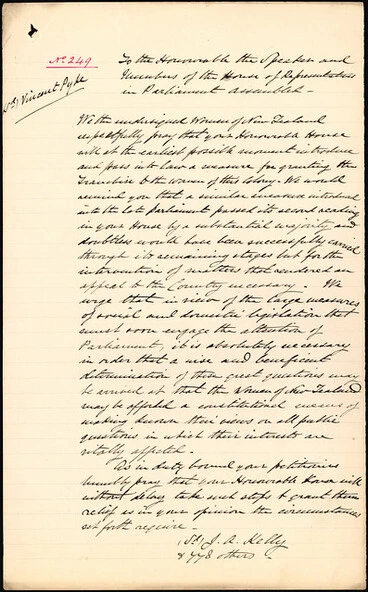 No 249
(Sd) Vincent Pyke
To the Honourable the Speaker and
Members of the House of Representatives
in Parliament assembled -
We the undersigned Women of New Zealand
respectfully pray that your Honourable House
will at the earliest possible moment introduce
and pass into law a measure for granting the
Franchise to the women of this Colony. We would
remind you that a similar measure introduced
into the late parliament passed its second reading
in your House by a substantial majority and
doubtless would have been successfully carried
through its remaining stages but for the
intervention of matters that rendered an
appeal to the Country necessary - We
urge that in view of the large measures
of social and domestic legislation that
must soon engage the attention of
Parliament, it is absolutely necessary
in order that a wise and beneficent
determination of these great questions may
be arrived at that the Women of New Zealand
may be afforded a constitutional means of
making known their views on all public
questions in which their interests are
vitally affected -
As in duty bound your petitioners
humbly pray that your Honourable House will
without delay take such steps to grant them
relief as in your opinion the circumstances
set forth require -
(Sd) J. A. Kelly
& 778 others -